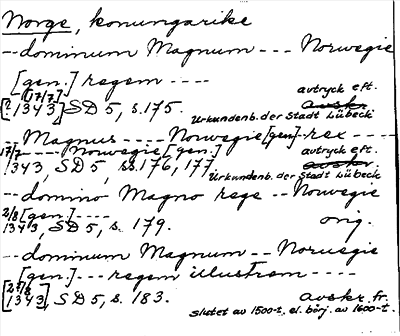 Norge, konungarike
-- dominum Magnum --- Norwegie
[gen.] regem ----
[2 17/7 1343], SD 5, s. 175. avtryck eft. avskr. Urkundenb. der Stadt Lübeck
-- Magnus ---- Norwegie [gen.] rex ----
---- Norwegie [gen.] avtryck eft.
17/7 1343, SD 5, ss. 176, 177, avskr. Urkundenb. der Stadt Lübeck
-- domino Magno rege -- Norwegie
[gen.] ----
2/8 1343, SD 5, s. 179. orig.
-- dominum Magnum -- Norwegie
[gen.] --- regem illustrem ----
[2 /8 1343], SD 5, s. 183. avskr. fr.
slutet av 1500-t. el. börj. av 1600-t.